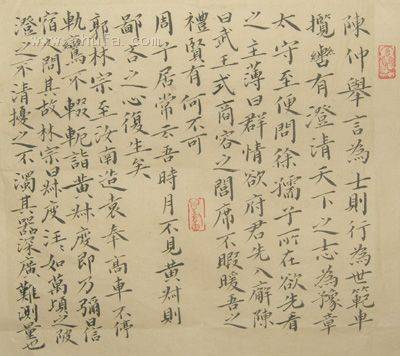 陳仲舉言為士則行為世範車
攬轡有澄清天下之志為豫章
太守至便問徐孺子所在欲先看
之主薄曰群情欲府君先入廨陳
曰武王式商容之閭席不暇暖吾之
禮賢有何不可
周子居常云吾時月不見黃叔則
鄙吝之心復生矣
郭林宗至汝南造袁奉高車不停
軌不輟軛詣黃叔度即乃彌日信
宿問其故林宗曰叔度汪如萬頃之陂
澄之不清擾之不濁其器深廣難測量也